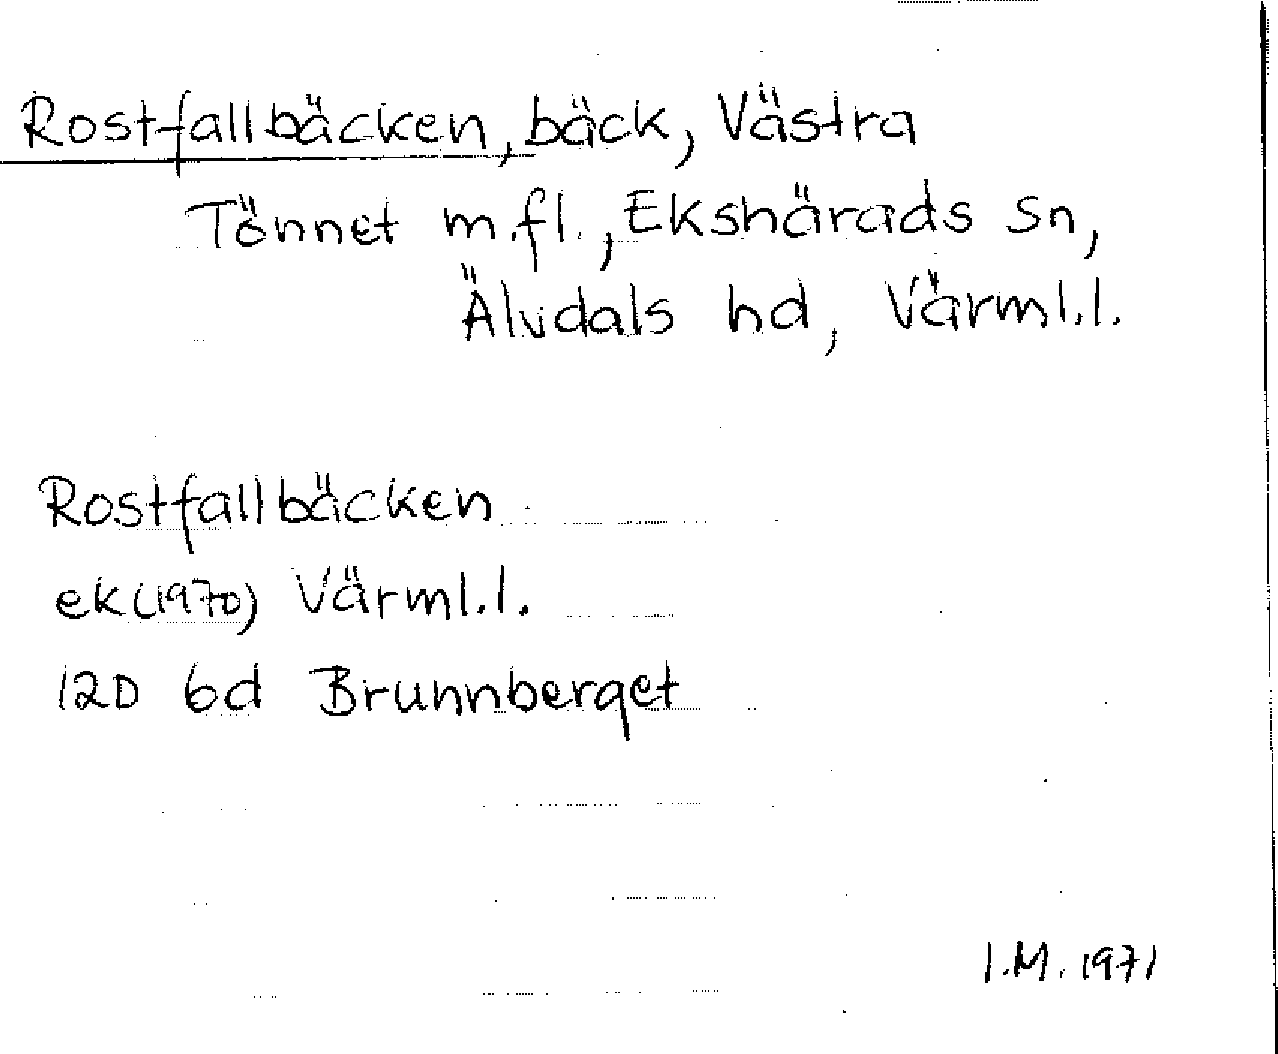 Rostfallbäcken, bäck, Västra
Tönnet m.fl., Ekshärads sn,
Älvdals hd, Värml.l.
Rostfallbäcken
ek(1970) Värml.l.
12D 6d Brunnberget
I.M. 1971